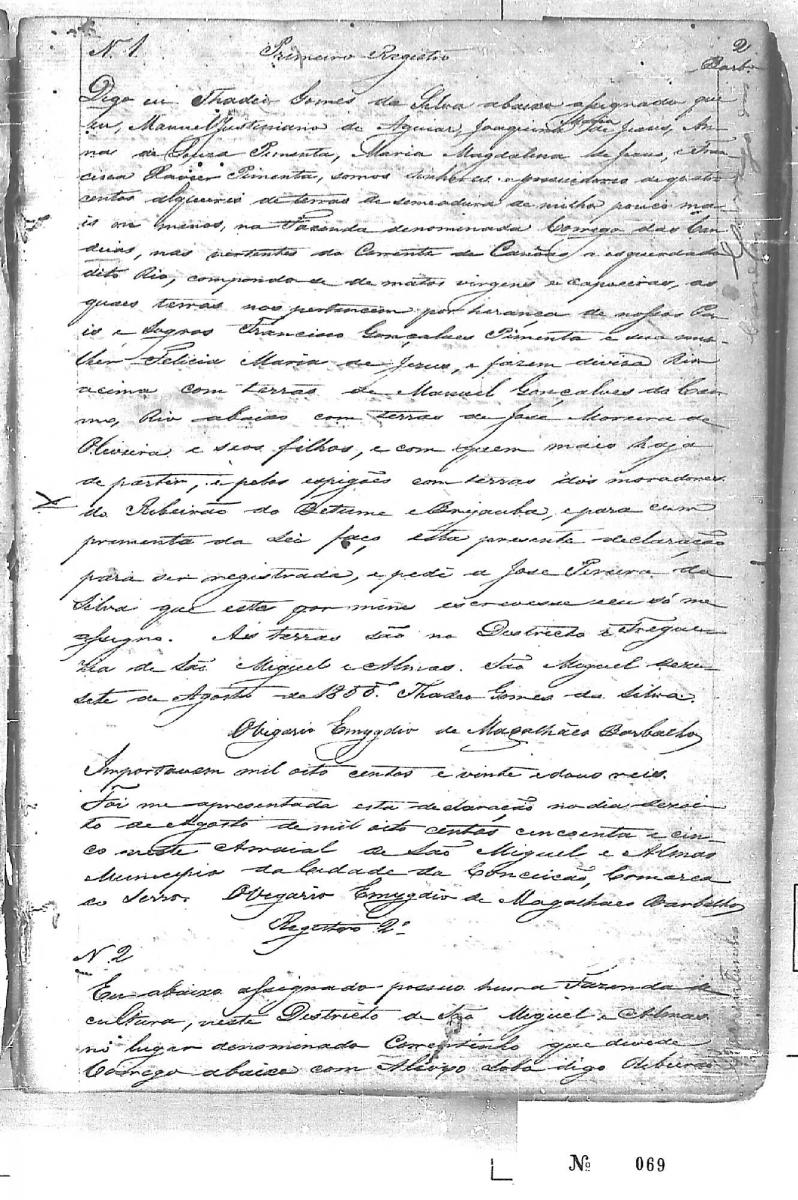 N. 1 Primeiro Registro 2
Barbº
Digo eu Thadeo Gomes da Silva abaixo assignado que
eu, Manuel Justiniano de Aguiar, Joaquina Maria de Jesus, An-
na de Souza Pimenta, Maria Magdalena de Jesus, e Fran-
cisca Xavier Pimenta, somos senhores e possuidores de quatro
centos alqueires de terras de semeadura de milho pouco ma-
is ou menos, na Fazenda denominada Corrego das Can-
deias, nas vertentes da Corrente de Canôas a esquerda do
dito Rio, compondo-se de matos virgens e capoeiras, as
quaes terras nos pertencem por herança de nossos Pa-
is e Sogros Francisco Gonçalves Pimenta e sua mu-
lher Felicia Maria de Jezus, e fazem divisa Rio
acima com terras de Manuel Gonçalves do Car-
mo, Rio abaixo com terras de José Moreira de
Oliveira e seos filhos, e com quem mais haja
de partir, e pelos espigões com terras dos moradores
do Ribeirão do Betume e Brejauba, e para cum
primento da Lei faço esta presente declaração
para ser registrada, e pedi a José Pereira da
Silva que esta por mim escrevesse e eu só me
assigno. As terras são no Destricto e Fregue-
zia de São Miguel e Almas. São Miguel deze-
sete de Agosto de 1855. Thadeo Gomes da Silva.
Olegario Emygdio de Magalhães Barbalho
Importavem mil oito centos e vinte e dous reis.
Foi me apresentada esta declaração no dia dezoi-
to de Agosto de mil oito centos cincoenta e cin-
co neste Arraial de São Miguel e Almas
Municipio da Cidade da Conceição, Comarca
do Serro. Olegario Emygdio de Magalhães Barbalho
Registro 2º
N. 2
Eu abaixo assignado possuo huma Fazenda de
cultura, neste Destricto de São Miguel e Almas
no lugar denominado Correntinho que devede
Corrego abaixo com Aleixo Lobo digo Ribeirão
Nº 069